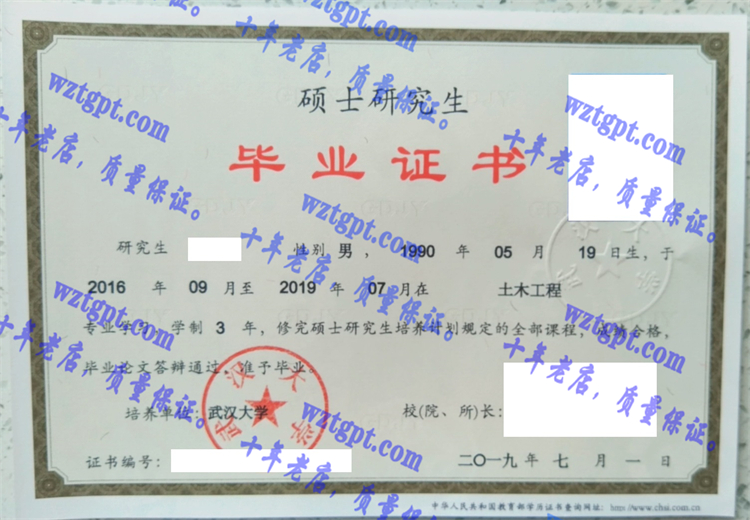 硕士研究生
毕业证书
研究生 性别 男，1990 年 05 月 19 日生，于
2016 年 09 月至 2019 年 07 月在 土木工程
专业学习 学制 3 年，修完硕士研究生培养计划规定的全部课程，成绩合格，
毕业论文答辩通过，准予毕业。
武汉大学
培养单位：武汉大学 校(院、所)长：
证书编号： 二〇一九年 七 月 一 日
中华人民共和国教育部学历证书查询网址：http://www.chsi.com.cn
wztgpt.com
十年老店，质量保证。
wztgpt.com
十年老店，质量保证。
wztgpt.com
十年老店，质量保证。
wztgpt.com
十年老店，质量保证。
wztgpt.com
十年老店，质量保证。
wztgpt.com
十年老店，质量保证。
wztgpt.com
十年老店，质量保证。